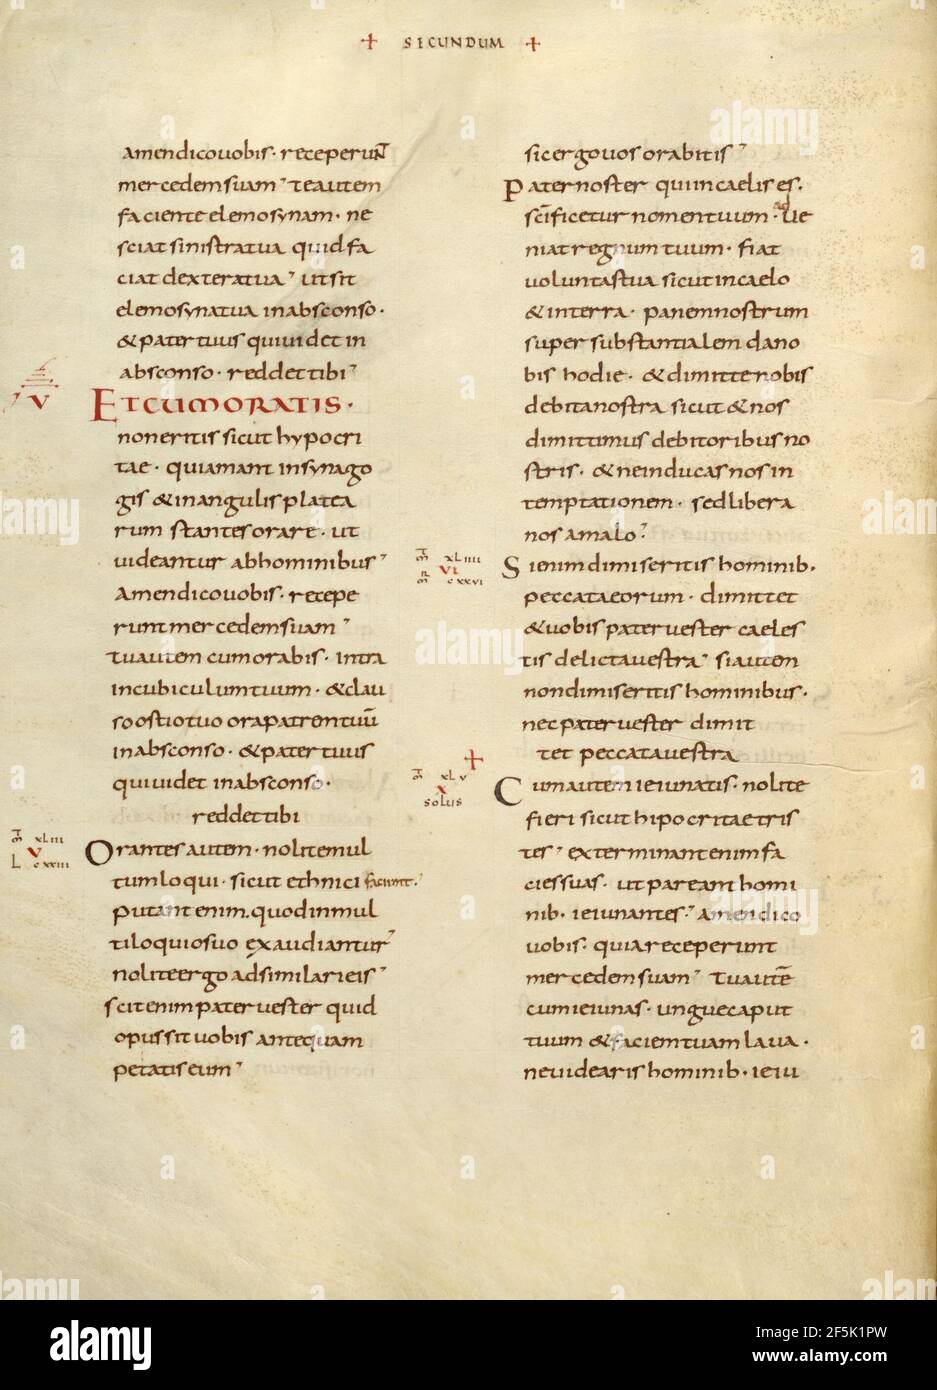 + SECUNDUM +
amendicouobis· receperunt
mercedemsuam' teautem
faciente elemosynam· ne
sciat sinistratua quidfa
ciat dexteratua' utsit
elemosynatua inabsconso·
&patertuus quiuidet in
absconso· reddettibi'
V
ETCUMORATIS·
noneritis sicut hypocri
tae· quiamant insynago
gis &inangulisplatea
rum stantesorare· ut
uideantur abhominibus'
Amendicouobis· recepe
runtmercedemsuam'
tuautem cumorabis· intra
incubiculumtuum· &clau
soostiotuo orapatrentuū
inabsconso· &patertuus
quiuidet inabsconso·
reddettibi
m̄ xliii
V
L cxxiii
Orantes autem· nolitemul
tumloqui· sicut ethnici faciunt·'
putantenim· quodinmul
tiloquiosuo exaudiantur'
noliteergo adsimilarieis'
scitenimpateruester quid
opussit uobis antequam
petatiseum'
sicergouosorabitis'
Paternoster quiincaelises·
sc̄ificetur nomentuum· adUe
niatregnumtuum· fiat
uoluntastua sicutincaelo
&interra· panemnostrum
supersubstantialem dano
bis hodie· &dimittenobis
debitanostra sicut &nos
dimittimus debitoribusno
stris· &neinducasnosin
temptationem· sedlibera
nos amalo'
m̄ xliiii
VI
cxxvi
Sienimdimiseritis hominib·
peccataeorum· dimittet
&uobispateruester caeles
tis delictauestra' siautem
nondimiseritis hominibus·
necpateruester dimit
tet peccatauestra
+
m̄ xlv
X
solus
Cumautemieiunatis· nolite
fieri sicut hipocritaetris
tes' exterminantenimfa
ciessuas· utpareant homi
nib· ieiunantes' Amendico
uobis· quiareceperunt
mercedemsuam' Tuautē
cumieiunas· unguecaput
tuum &faciemtuamlaua·
neuidearishominib· ieiu
alamy
Image ID: 2F5K1PW
www.alamy.com